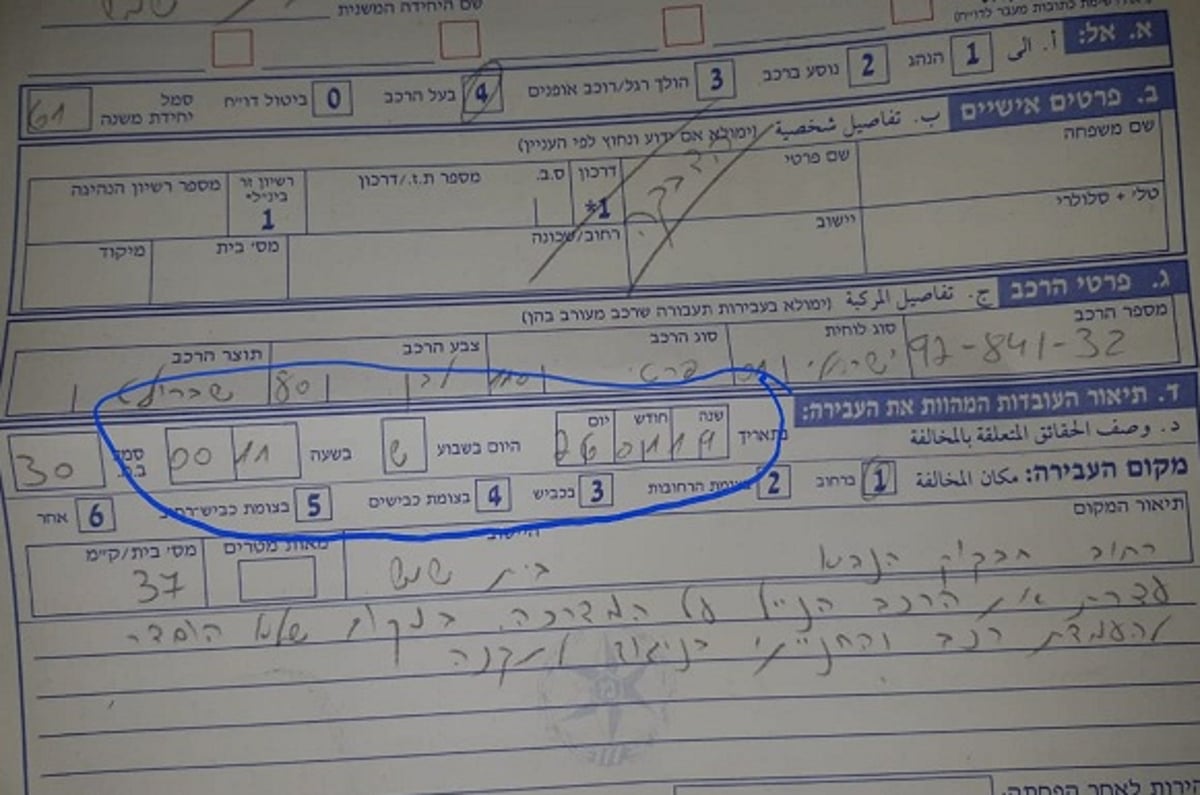 שם היחידה המשנית
א. אל: أ. الى 1 הנהג 2 נוסע ברכב 3 הולך רגל/רוכב אופנים 4 בעל הרכב 0 ביטול דו״ח סמל יחידת משנה 61
ב. פרטים אישיים ب. تفاصيل شخصية (ימולא אם ידוע ונחוץ לפי העניין)
שם משפחה שם פרטי דרכון *1 ס.ב. מספר ת.ז./דרכון רשיון זר בינ״ל* 1 מספר רשיון הנהיגה
טלי + סלולרי יישוב רחוב/שכונה מס׳ בית מיקוד
ג. פרטי הרכב ج. تفاصيل المركبة (ימולא בעבירות תעבורה שרכב מעורב בהן)
מספר הרכב סוג לוחית סוג הרכב צבע הרכב תוצר הרכב
92-841-32 ישראלי פרטי לבן 80 שברולט
ד. תיאור העובדות המהוות את העבירה:
د. وصف الحقائق المتعلقة بالمخالفة
בתאריך שנה 19 חודש יום 26 היום בשבוע ש בשעה 11 00 סמל 30
מקום העבירה: مكان المخالفة 1 ברחוב 2 בצומת הרחובות 3 בכביש 4 בצומת כבישים 5 בצומת כביש-רחוב 6 אחר
תיאור המקום היישוב מאות מטרים מס׳ בית/ק״מ
רחוב חבקוק הנביא בית שמש 37
עצרת את הרכב הנ״ל על המדרכה, במקום שלא הוסדר
להעמדת רכב והחנייתו בניגוד לתקנה